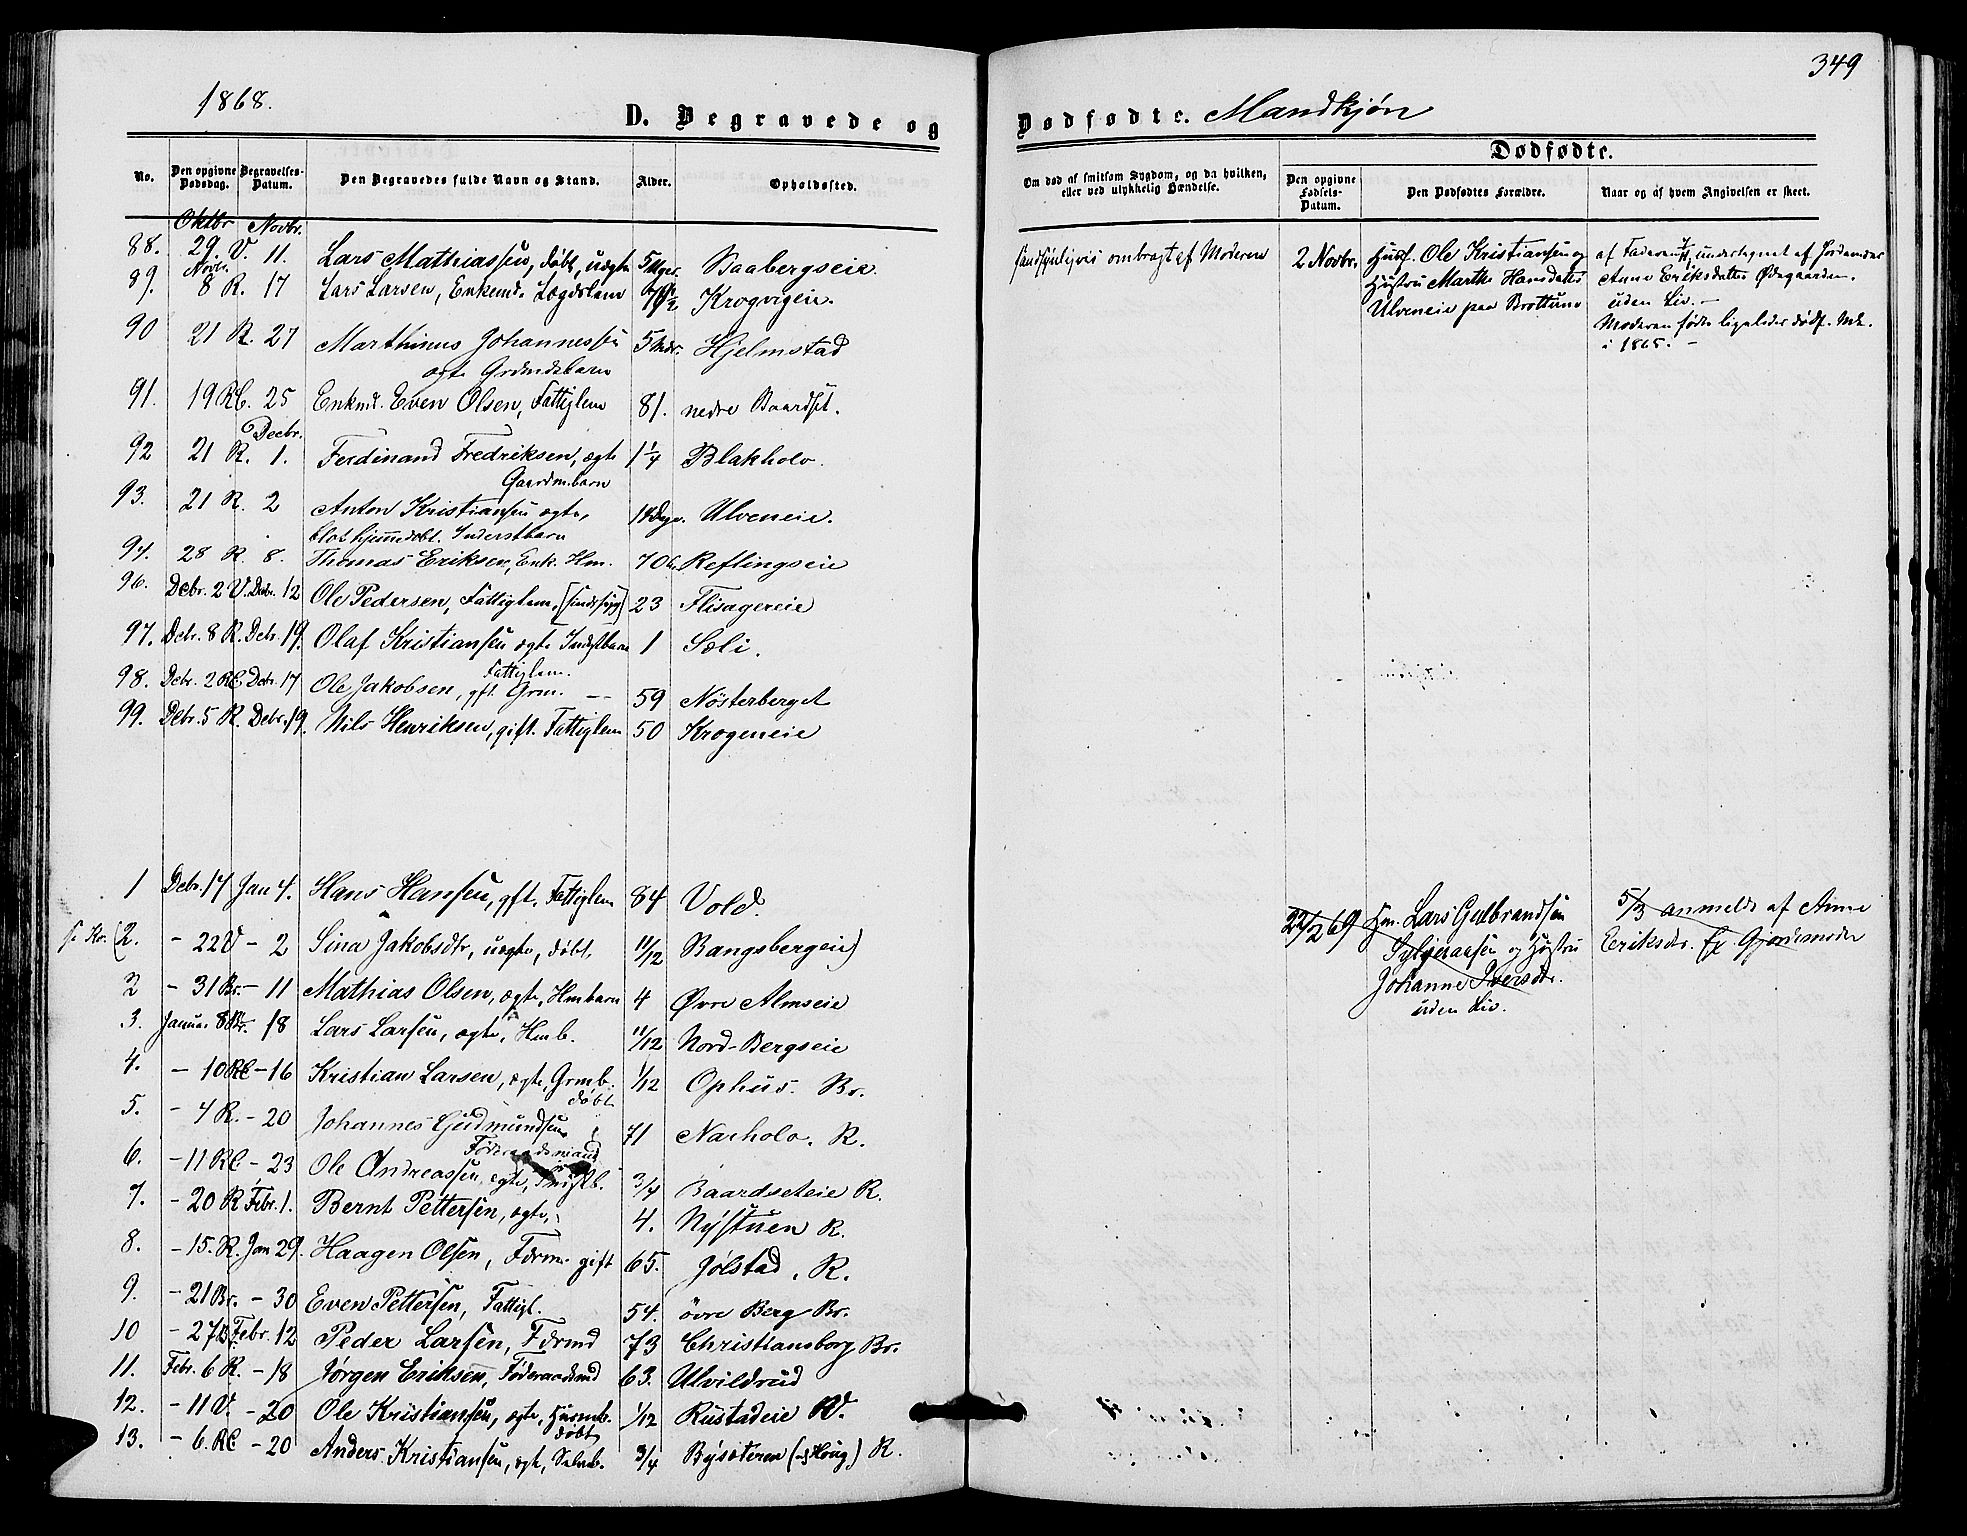 1868.
349
D. Begravede og Dødfødte. Mandkjøn
Dødfødte.
No. Den opgivne Dødsdag. Begravelses-Datum. Den Begravedes fulde Navn og Stand. Alder. Opholdssted.
Om død af smitsom Sygdom, og da hvilken, eller ved ulykkelig Hændelse. Den opgivne Fødsels-Datum. Den Dødfødtes Forældre. Naar og af hvem Angivelsen er skeet.
Oktbr Novbr.
88. 29. V. 11. Lars Mathiassen, døbt, uægte 5 Uger. Baabergseie. sandsynligvis ombragt af Moderen
Novbr.
89. 8 R. 17 Lars Larsen, Enkemd. Lægdslem Krogvigen.
90 21 R. 27 Marthinus Johannessen 5 Mdr. Hjelmstad
ægte Grdmdsbarn
91. 19 RC. 25 Enkmd. Even Olsen, Fattiglem 81. nedre Baardset.
Decbr.
92 21 R. 1. Ferdinand Fredriksen, ægte 1 1/4 Blakholv.
Gaardm.barn
93. 21 R. 2 Anton Kristiansen ægte, 14 Dage. Ulveneie.
blot hjemmedøbt. Inderstbarn
94. 28 R. 8. Thomas Eriksen, Enk. Hm. 70 Reflingseie
96. Debr. 2 V. Debr. 12 Ole Pedersen, Fattiglem, [sindssyg] 23 Flisagereie
97. Debr. 8 R. Debr. 19. Olaf Kristiansen ægte Indstbarn 1 Sæli.
Fattiglem.
98. Debr. 2 RC Debr. 17 Ole Jakobsen, gft. Grm. — 59 Nösterberget
99. Debr. 5 R. Debr. 19. Nils Henriksen, gift. Fattiglem 50 Krogeneie
2 Novbr. Husf. Ole Kristiansen og
Hustru Marthe Hansdatter
Ulveneie paa Brottum
af Faderen, undertegnet af Jordemoder
Anne Eriksdatter Ødegaarden.
uden Liv. —
Moderen fødte ligeledes dødf. Mk.
i 1865. —
1 Debr. 14 Jan 4. Hans Hansen, gft. Fattiglem 84 Vold.
(2. - 22 V - 2 Sina Jakobsdtr, uægte, døbt. 11/12 Bangsbergeie)
2 - 31 Br. - 11 Mathias Olsen, ægte, Hmbarn 4 Øvre Almseie
3. Januar 8 Br. - 18 Lars Larsen, ægte, Hmb. 11/12 Nord-Bergseie
4. - 10 RC - 16 Kristian Larsen, ægte, Grmb. 1/12 Ophus. Br.
døbt
5. - 4 R. - 20 Johannes Gudmundsen 71 Narholo. R.
Føderaadsmand
6. - 11 RC - 23 Ole Andreassen, ægte, 3/4 Baardseteie R.
7. - 20 R Febr. 1. Bernt Pettersen, ægte, 4. Nÿstuen R.
8. - 15. R. Jan 29. Haagen Olsen, Fdrm. gift 65. Jølstad, R.
9. - 21 Br. - 30 Even Pettersen, Fattigl. 54. övre Berg Br.
10 - 27 Br. Febr. 12 Peder Larsen, Fdrmd 73 Christiansborg Br.
11. Febr. 6 R. - 18 Jørgen Eriksen, Føderaadsmd 63. Ulvildrud
12. - 11 V. - 20 Ole Kristiansen, ægte, Husmb. 1/12 Rustadeie V.
døbt
13. - 6. RC - 20 Anders Kristiansen, ægt, Selveb. 3/4 Bÿsæteren R.
22/2 69 Hm. Lars Gulbrandsen
og Hustru
Johanne Iversdtr.
uden Liv.
5/3 anmeldt af Anne
Eriksdtr. Gjordemoder